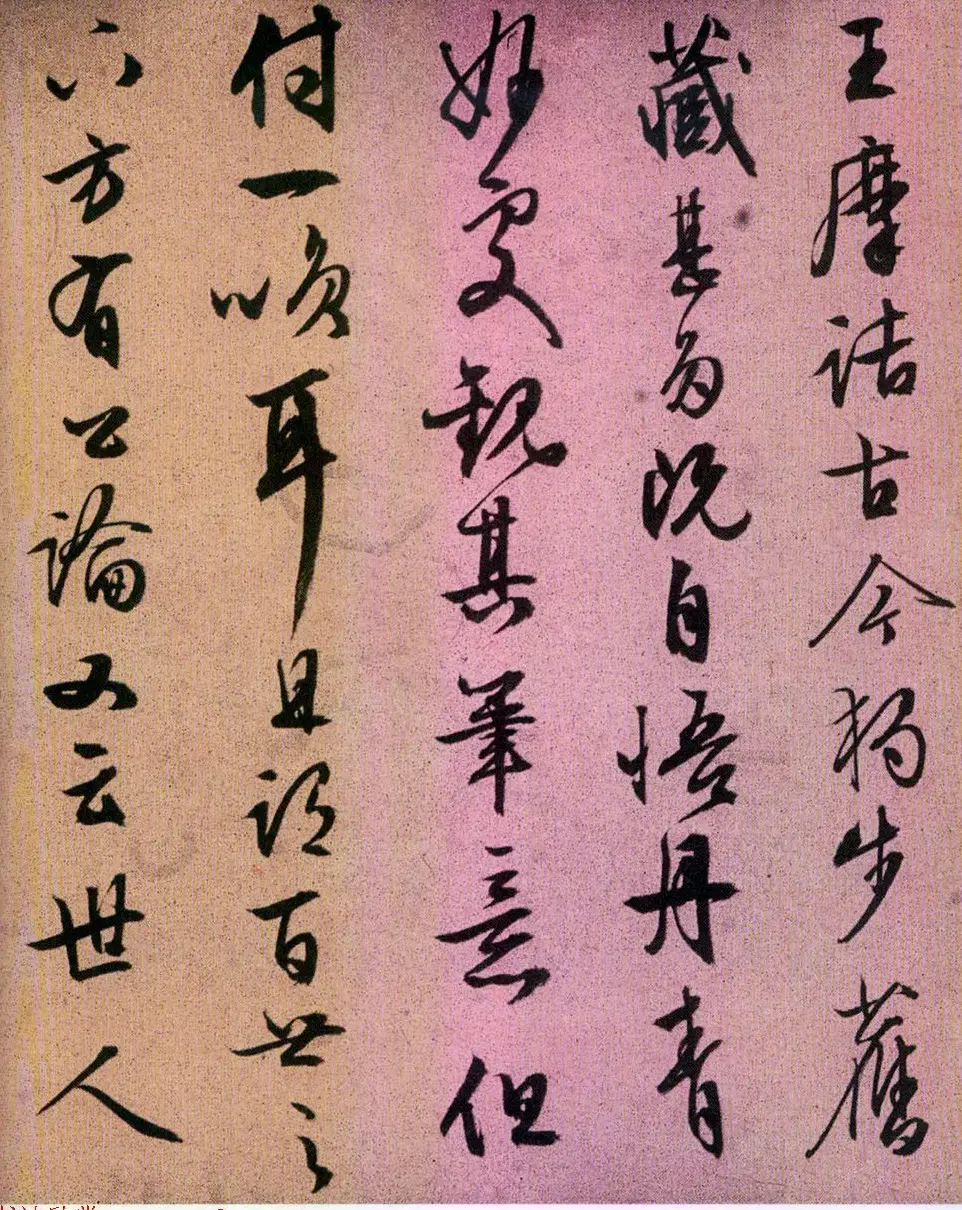 王摩詰古今獨步舊
藏甚多既自悟丹青
妙處觀其筆意但
付一噱耳且謂百世之
下方有公論又云世人